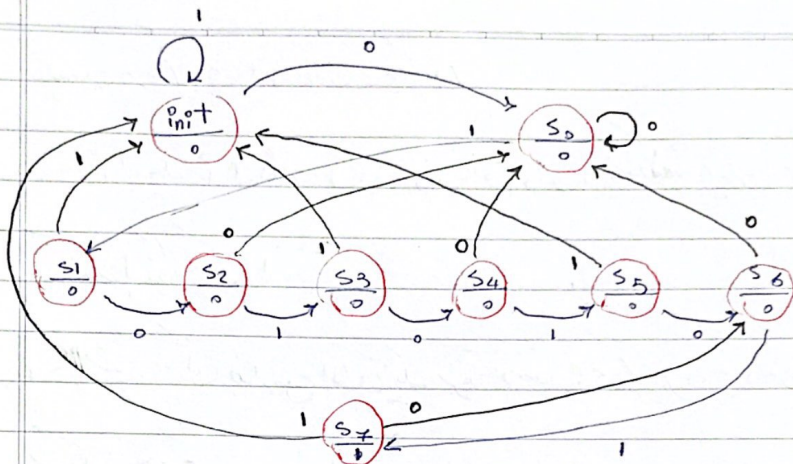 1
0
init
0
S0
0
0
1
1
S1
0
0
S2
0
1
S3
0
0
S4
0
1
S5
0
0
S6
0
0
1
0
1
0
1
0
S7
1
1